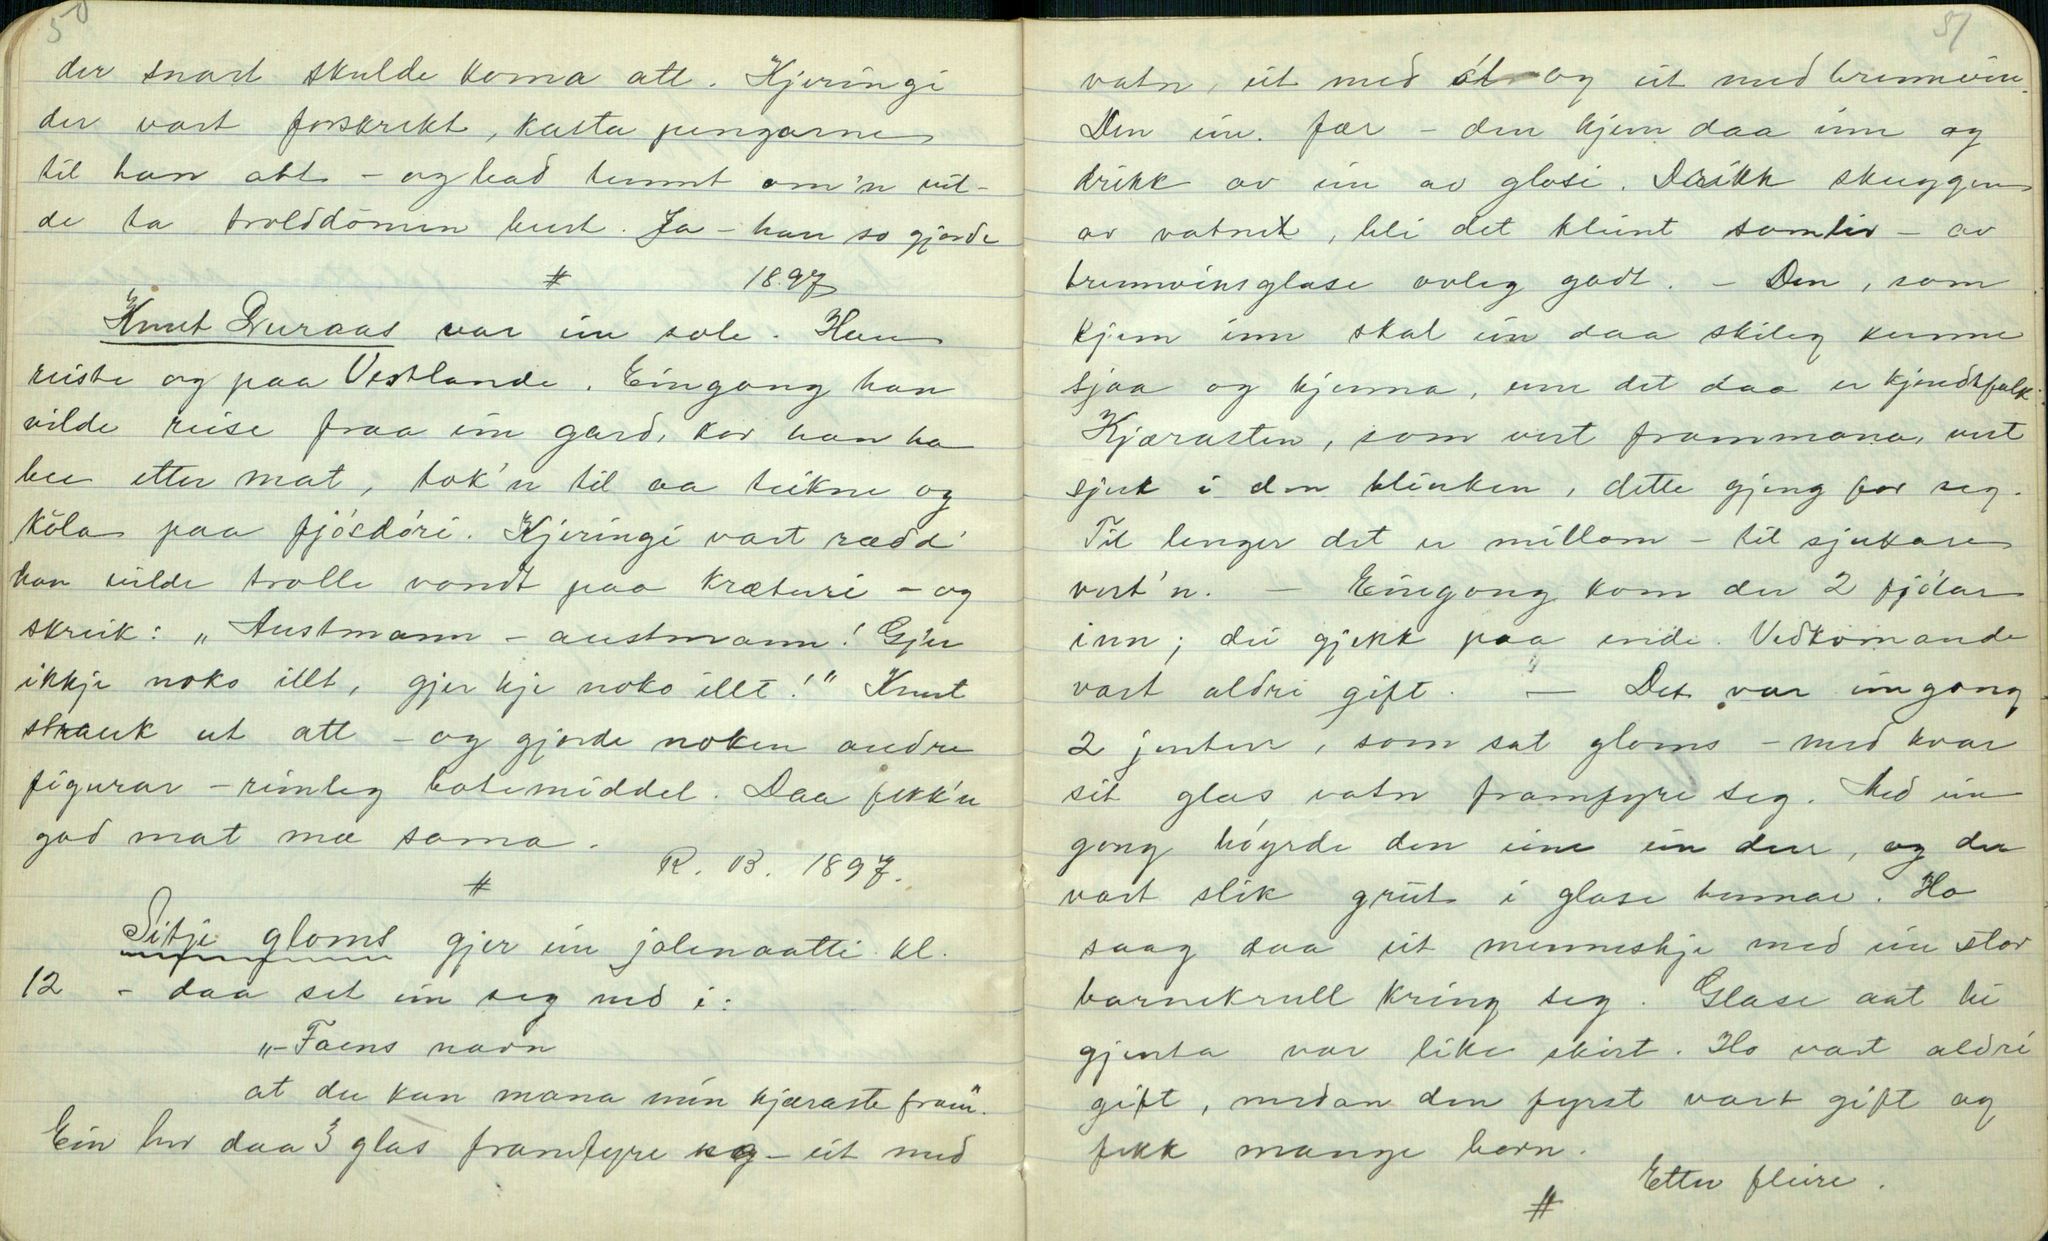 50
der snart skulde koma att. Kjeringi
der vart forskrekt, kasta pengarne
til han att - og bad tennt om'n vil-
de ta trolldomen burt. Ja - han so gjorde
# 1897
Knut Duraas var ein sole. Han
reiste og paa Vestlande. Eingong han
vilde reise fraa ein gard, kor han ha
bee etter mat, tok'n til aa teikne og
kola paa fjósdóri. Kjeringi vart rædd
han vilde trolle vondt paa kræturi - og
skreik: „Austmann - austmann! Gjer
ikkje noko illt, gjer kje noko illt!" Knut
strauk ut att - og gjorde noken andre
figurar - rimleg botemiddel. Daa fekk'n
god mat mæ sama.
R. B. 1897.
#
Sitje gloms gjer ein jolenaatti kl.
12 - daa set ein seg ned i:
„- Faens navn
at du kan mana min kjæraste fram".
Ein hev daa 3 glas framfyre seg - eit med
51
vatn, eit med ól og eit med brennevin.
Den ein fær - den kjem daa inn og
drikk av ein av glasi. Drikk skuggen
av vatnet, bli det kleint samliv - av
brennvinsglase ovleg godt. - Den, som
kjem inn skal ein daa skileg kunne
sjaa og kjenna, um det daa er kjendtfolk.
Kjærasten, som vert frammana, vert
sjuk i den blinken, dette gjeng for seg.
Til lenger det er millom - til sjukare
vert'n. - Eingong kom der 2 fjólar
inn; dei gjekk paa ende. Vedkomande
vart aldri gift. - Det var eingong
2 jenter, som sat gloms - med kvar
sit glas vatn framfyre seg. Med ein
gong høyrde den eine ein dur, og der
vart slik grut i glase hennar. Ho
saag daa eit menneskje med ein stor
barnekrull kring seg. Glase aat hi
gjenta var like skirt. Ho vart aldri
gift, medan den fyrst vart gift og
fekk mange born.
Etter fleire.
#